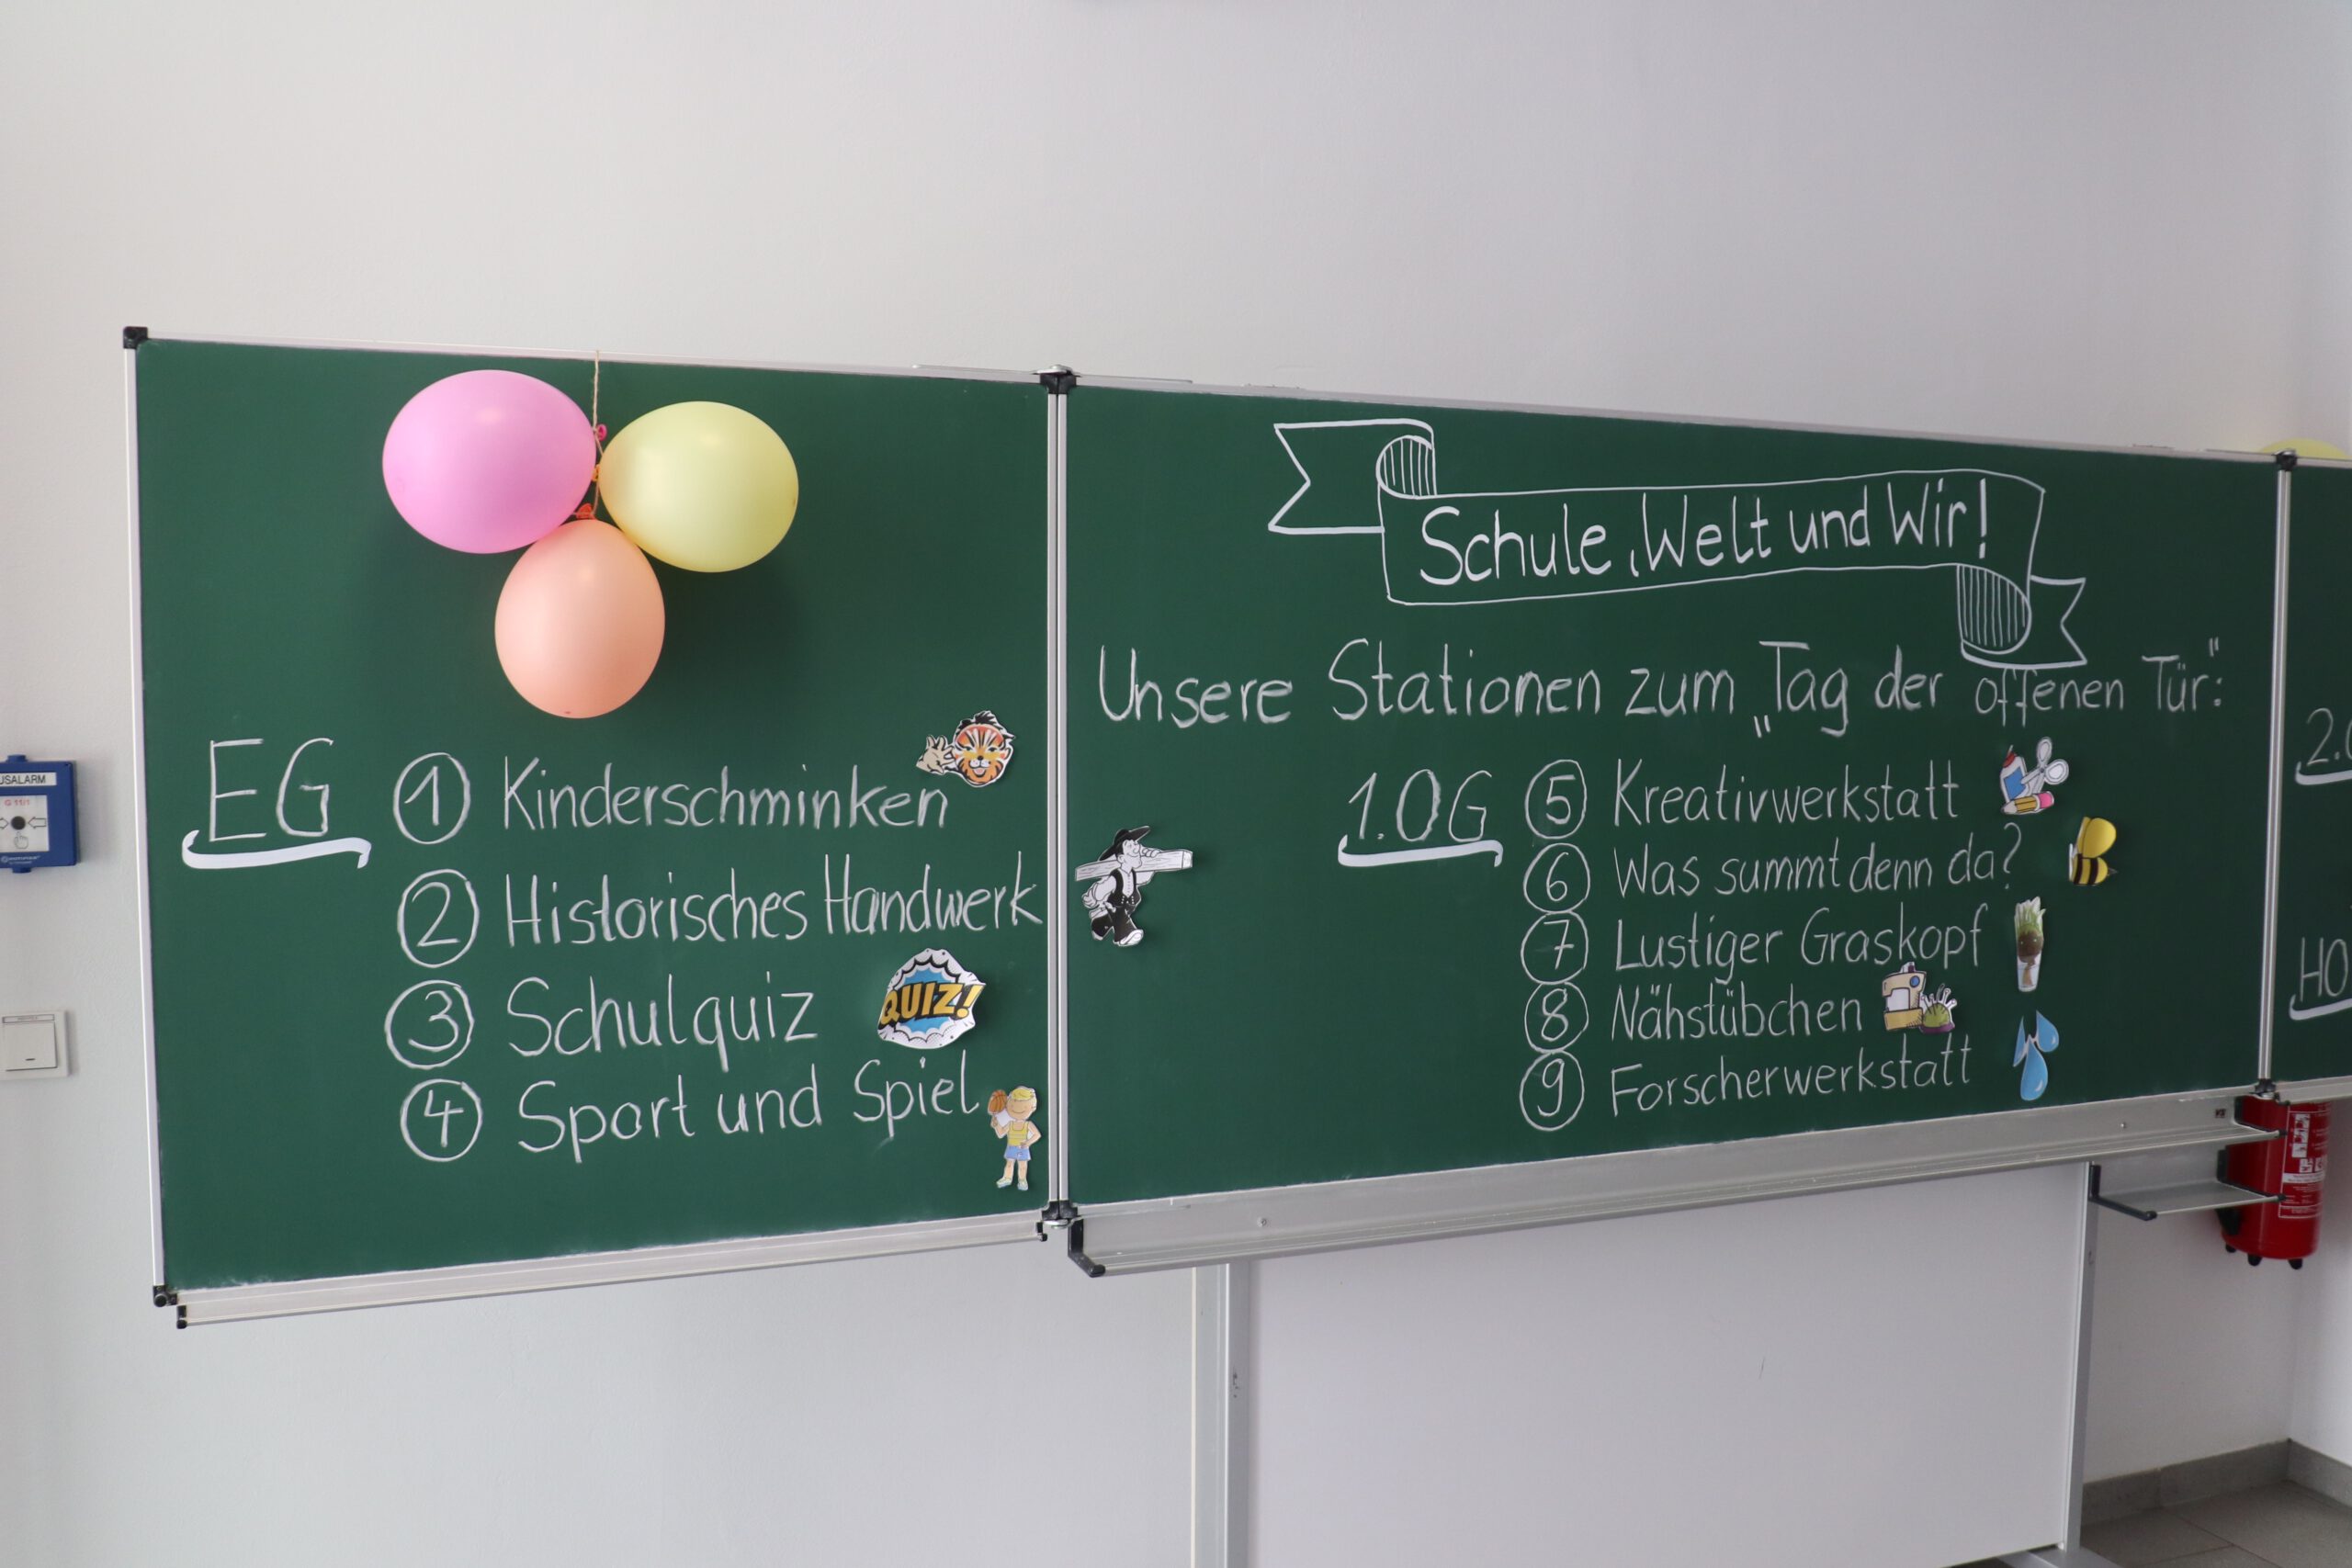 Schule, Welt und Wir!
Unsere Stationen zum „Tag der offenen Tür":
EG
① Kinderschminken
② Historisches Handwerk
③ Schulquiz
QUIZ!
④ Sport und Spiel
1.OG
⑤ Kreativwerkstatt
⑥ Was summt denn da?
⑦ Lustiger Graskopf
⑧ Nähstübchen
⑨ Forscherwerkstatt
2.
HO
USALARM